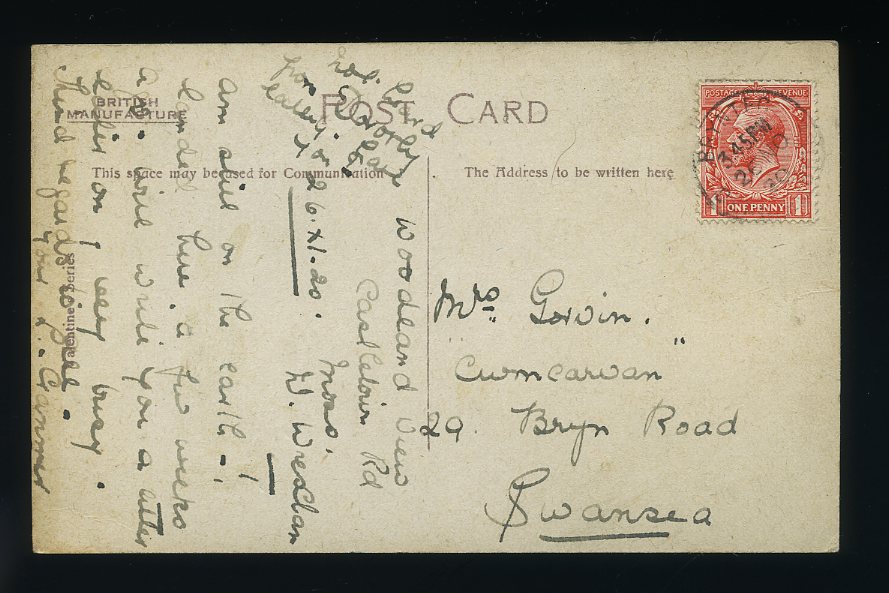 BRITISH
MANUFACTURE
POST CARD
This space may be used for Communication
The Address to be written here
Valentine's Series
POSTAGE REVENUE
ONE PENNY 1
3.45PM
Woodland View
Castletown Rd
Moss.
26.XI.20.
am still on the earth - !
landed here a few weeks
ago. will write you a letter
later on, very busy.
Kind regards to all.
Mrs. Gorvin.
"Cwmcarvan"
29. Bryn Road
Swansea